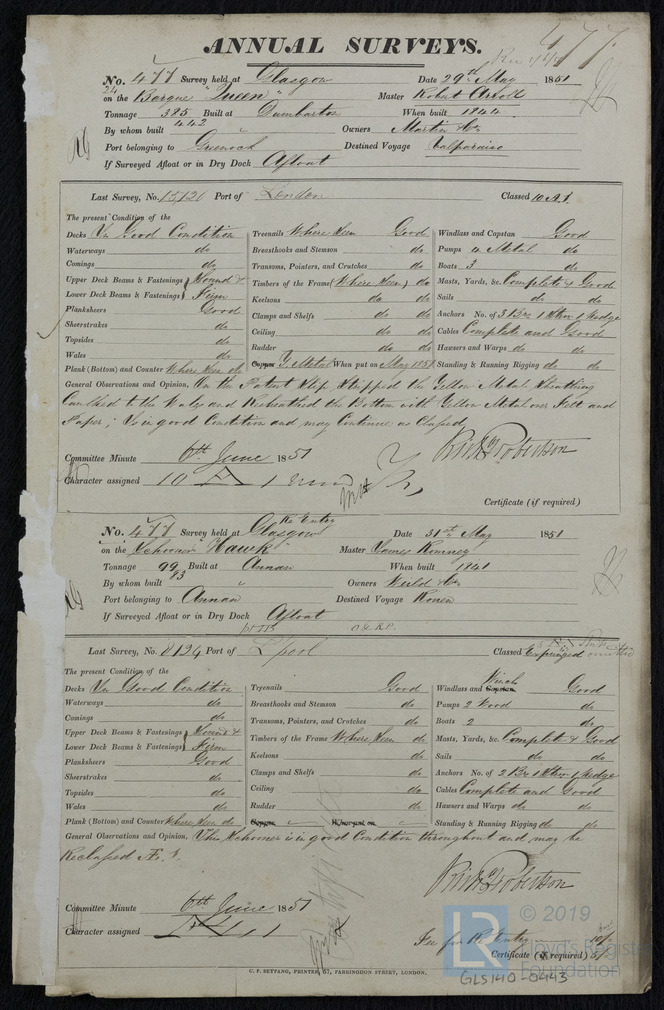 477.
ANNUAL SURVEYS.
No. 477 Survey held at Glasgow Date 29th May 1851
24
on the Barque "Queen" Master Robert Arroll
Tonnage 385 Built at Dumbarton When built 1844
442
By whom built " Owners Martin &Co
Port belonging to Greenock Destined Voyage Valparaiso
If Surveyed Afloat or in Dry Dock Afloat
Last Survey, No. 15120 Port of London Classed 10 A.1.
The present Condition of the
Decks In Good Condition Treenails Where Seen Good Windlass and Capstan Good
Waterways do Breasthooks and Stemson do Pumps 4 Metal do
Comings do Transoms, Pointers, and Crutches do Boats 3 do
Upper Deck Beams & Fastenings Sound & Timbers of the Frame (Where Seen) do Masts, Yards, &c. Complete & Good
Lower Deck Beams & Fastenings Firm Keelsons do do Sails do do
Planksheers Good Clamps and Shelfs do do Anchors No. of 3 Brs 1 Strm 1 Kedge
Sheerstrakes do Ceiling do do Cables Complete and Good
Topsides do Rudder do do Hawsers and Warps do do
Wales do Copper Y. Metal When put on May 1851 Standing & Running Rigging do do
Plank (Bottom) and Counter Where Seen do
General Observations and Opinion, On the Patent Slip Stripped the Yellow Metal Sheathing
Caulked to the Wales and Resheathed the Bottom with Yellow Metal over Felt and
Paper; Is in good Condition and may Continue as Classed
Committee Minute 6th June 1851
Character assigned 10 A 1
Certificate (if required)
Re Entry
No. 477 Survey held at Glasgow Date 31st May 1851
on the Schooner "Hawk" Master James Romney
Tonnage 99 Built at Annan When built 1841
83
By whom built " Owners Weild &Co
Port belonging to Annan Destined Voyage Rouen
If Surveyed Afloat or in Dry Dock Afloat
Last Survey, No. 8124 Port of L'pool Classed Expunged
The present Condition of the
Decks In Good Condition Treenails Good Windlass and Capstan Winch Good
Waterways do Breasthooks and Stemson do Pumps 2 Wood do
Comings do Transoms, Pointers, and Crutches do Boats 2 do
Upper Deck Beams & Fastenings Sound & Timbers of the Frame Where Seen do Masts, Yards, &c. Complete & Good
Lower Deck Beams & Fastenings Firm Keelsons do Sails do do
Planksheers Good Clamps and Shelfs do Anchors No. of 2 Brs 1 Strm 1 Kedge
Sheerstrakes do Ceiling do Cables Complete and Good
Topsides do Rudder do Hawsers and Warps do do
Wales do Copper When put on Standing & Running Rigging do do
Plank (Bottom) and Counter Where Seen do
General Observations and Opinion, This Schooner is in good Condition throughout and may be
Reclassed Æ.1.
Committee Minute 6th June 1851
Character assigned
Fee for Re Entry 10/
Certificate (if required) 5/
C. F. SEYFANG, PRINTER, 57, FARRINGDON STREET, LONDON.
© 2019
LR Lloyd's Register
Foundation
GLS140-0443